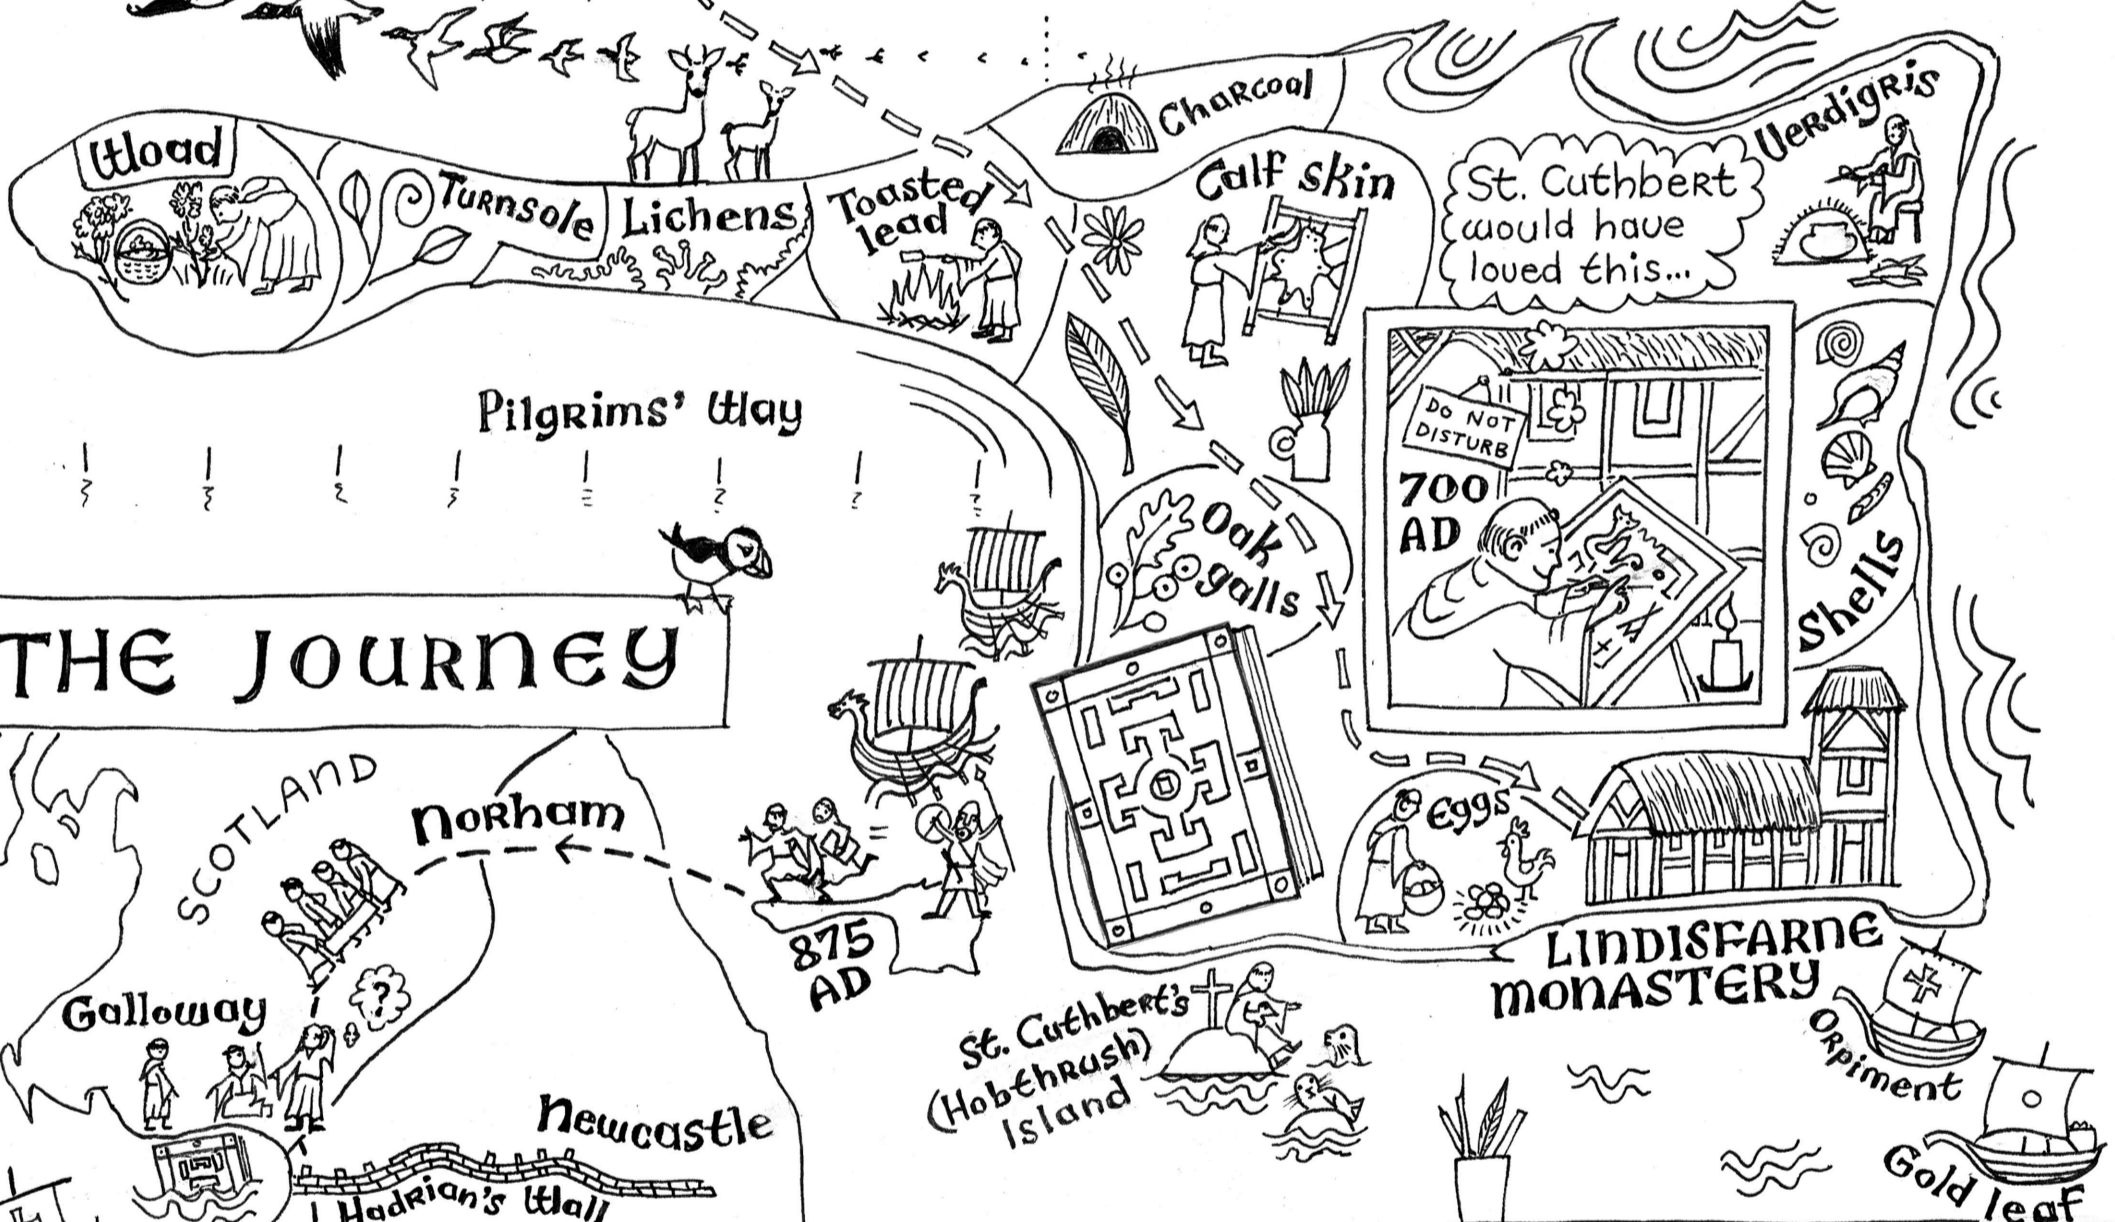 Woad
Turnsole
Lichens
Toasted
lead
Charcoal
Calf skin
St. Cuthbert
would have
loved this...
Verdigris
Pilgrims' Way
DO NOT
DISTURB
700
AD
Oak
galls
Shells
THE JOURNEY
SCOTLAND
Norham
875
AD
Eggs
LINDISFARNE
MONASTERY
Galloway
?
St. Cuthbert's
(Hobthrush)
Island
Orpiment
Gold leaf
Newcastle
Hadrian's Wall